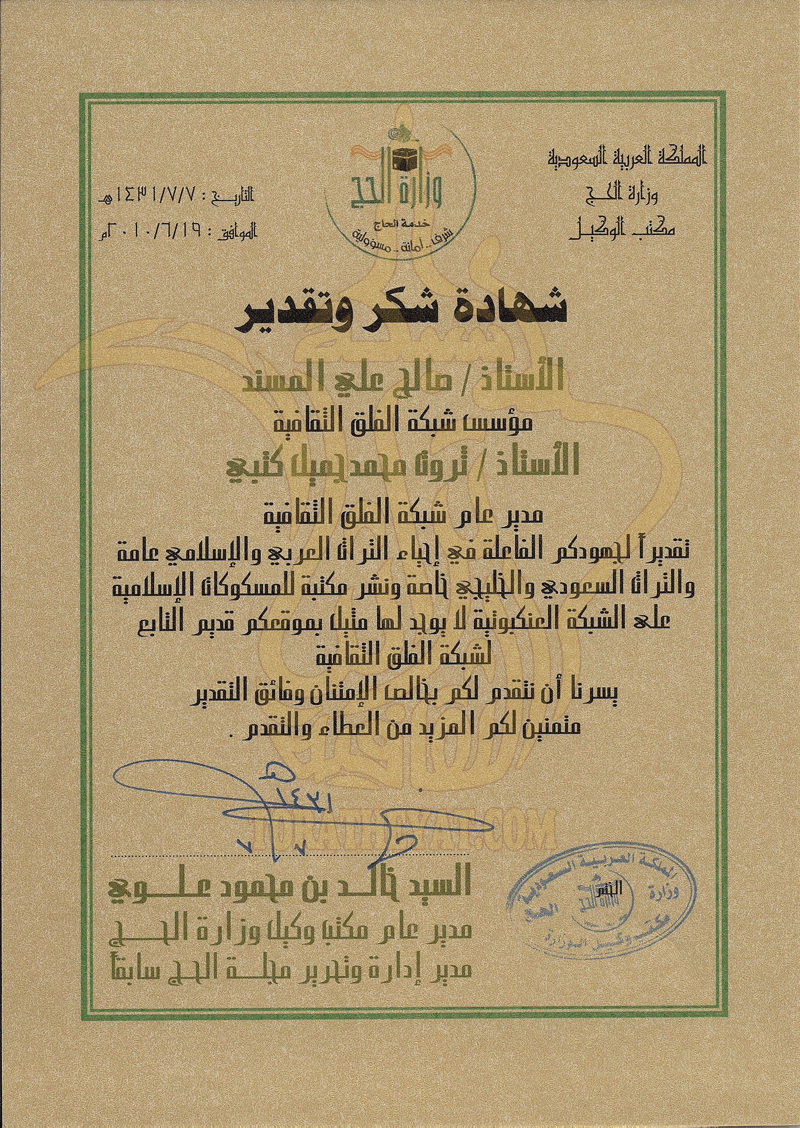 المملكة العربية السعودية
وزارة الحج
مكتب الوكيل
وزارة الحج
خدمة الحاج
شرف .. أمانة .. مسؤولية
التاريخ : ١٤٣١/٧/٧هـ
الموافق : ٢٠١٠/٦/١٩م
شهادة شكر وتقدير
الأستاذ / صالح علي المسند
مؤسس شبكة الفلق الثقافية
الأستاذ / ثروت محمدجميل كتبي
مدير عام شبكة الفلق الثقافية
تقديراً لجهودكم الفاعلة في إحياء التراث العربي والإسلامي عامة
والتراث السعودي والخليجي خاصة ونشر مكتبة للمسكوكات الإسلامية
على الشبكة العنكبوتية لا يوجد لها مثيل بموقعكم قديم التابع
لشبكة الفلق الثقافية
يسرنا أن نتقدم لكم بخالص الإمتنان وفائق التقدير
متمنين لكم المزيد من العطاء والتقدم .
١٤٣١هـ
٧ ٧
TORATHEYAT.COM
السيد خالد بن محمود علوي
مدير عام مكتب وكيل وزارة الحج
مدير إدارة وتحرير مجلة الحج سابقاً
المملكة العربية السعودية
وزارة الحج
الختم
مكتب وكيل الوزارة